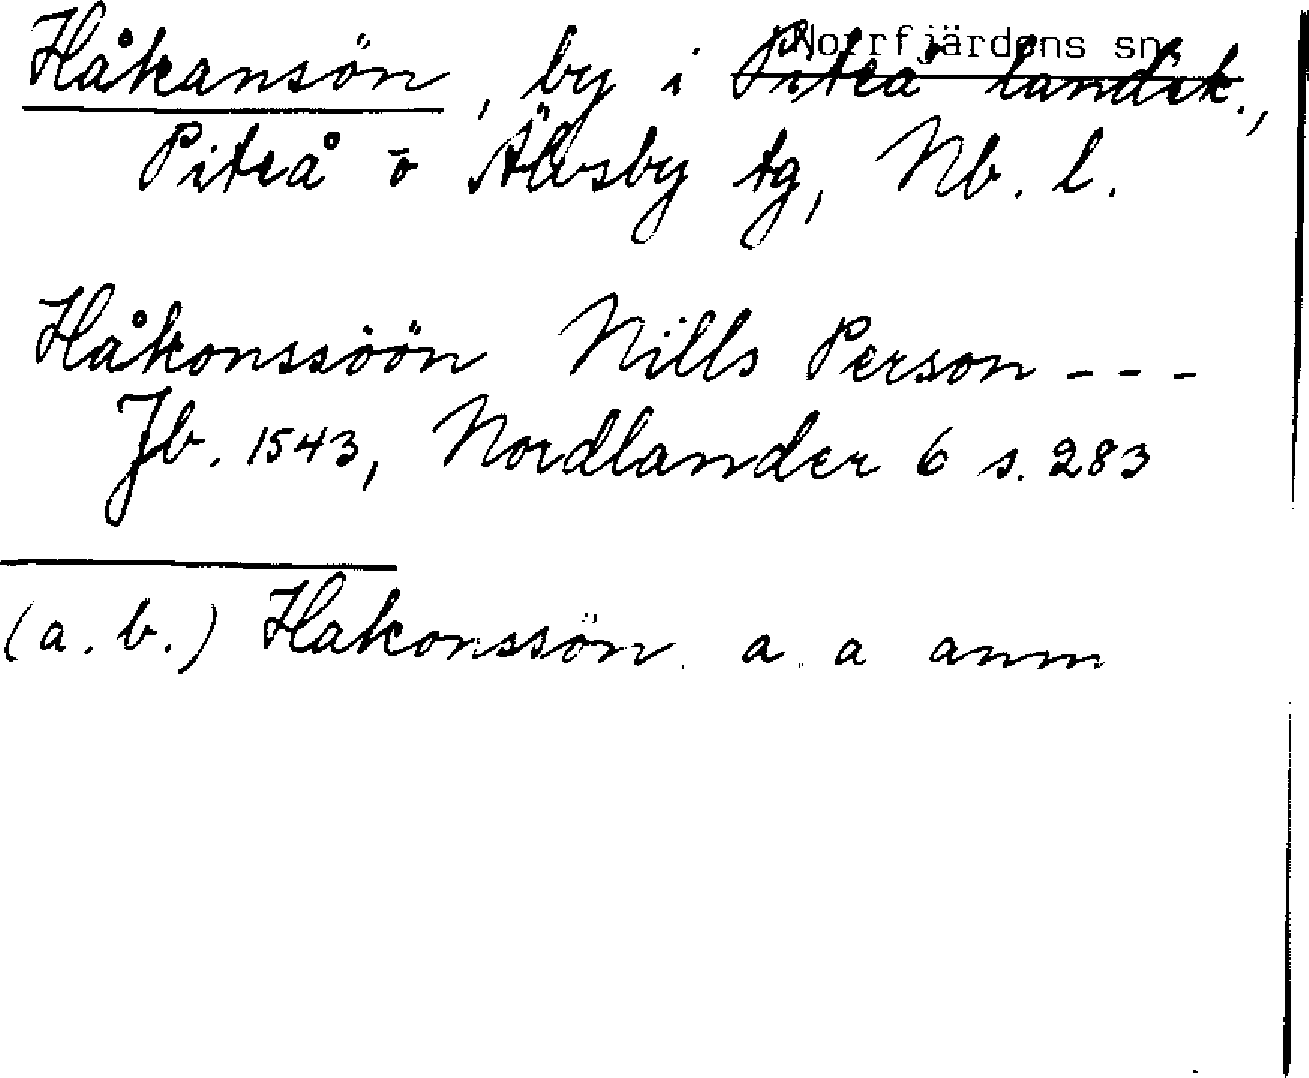 Norrfjärdens sn.
Håkansön, by i Piteå landsk.,
Piteå o Älvsby tg, Nb. l.
Håkonssöön Nills Person - - -
Jb. 1543, Nordlander 6 s. 283
(a. b.) Hakonssön a. a anm